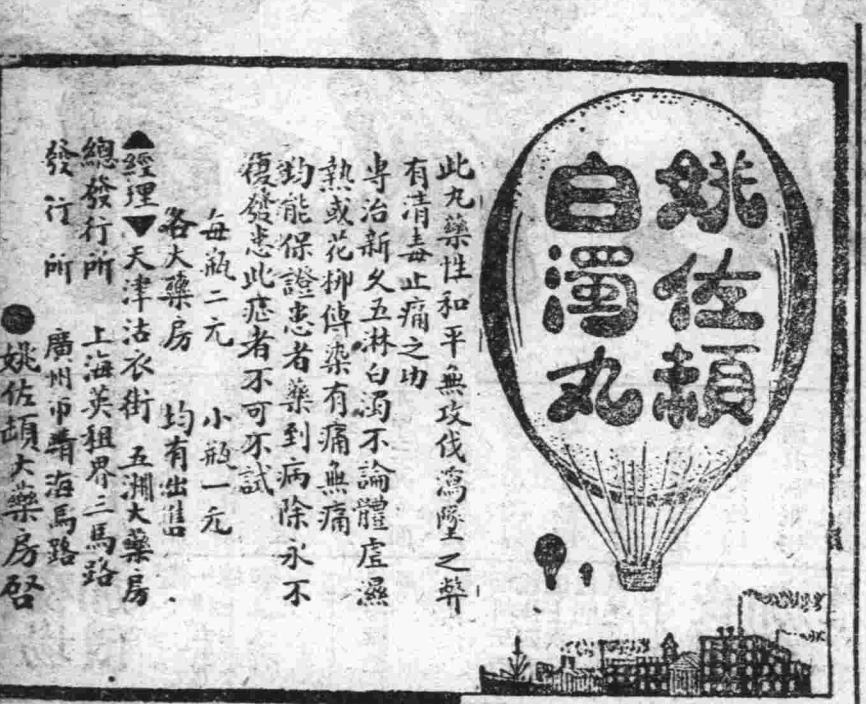 姚佐頓
白濁丸
此丸藥性和平無攻伐瀉墜之弊
有清毒止痛之功
専治新久五淋白濁不論體虛濕
熱或花柳傳染有痛無痛
均能保證患者藥到病除永不
復發患此症者不可不試
每瓶二元 小瓶一元
各大藥房 均有出售
▲經理▼天津沽衣街 五洲大藥房
總發行所 上海英租界二馬路
發行所 廣州市靖海馬路
●姚佐頓大藥房啓